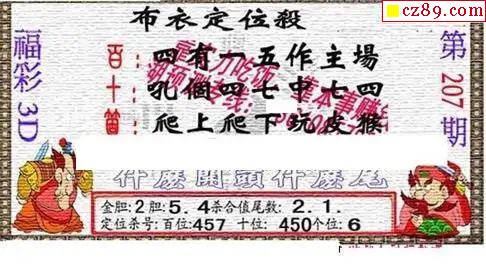 cz89.com
布衣定位殺
福彩3D
第207期
百 四有一五作主場
十 吼個四七中七四
箇 爬上爬下玩皮猴
什麼開頭什麼尾
金胆:2胆:5.4杀合值尾数:2.1.
定位杀号:百位:457 十位:450个位:6